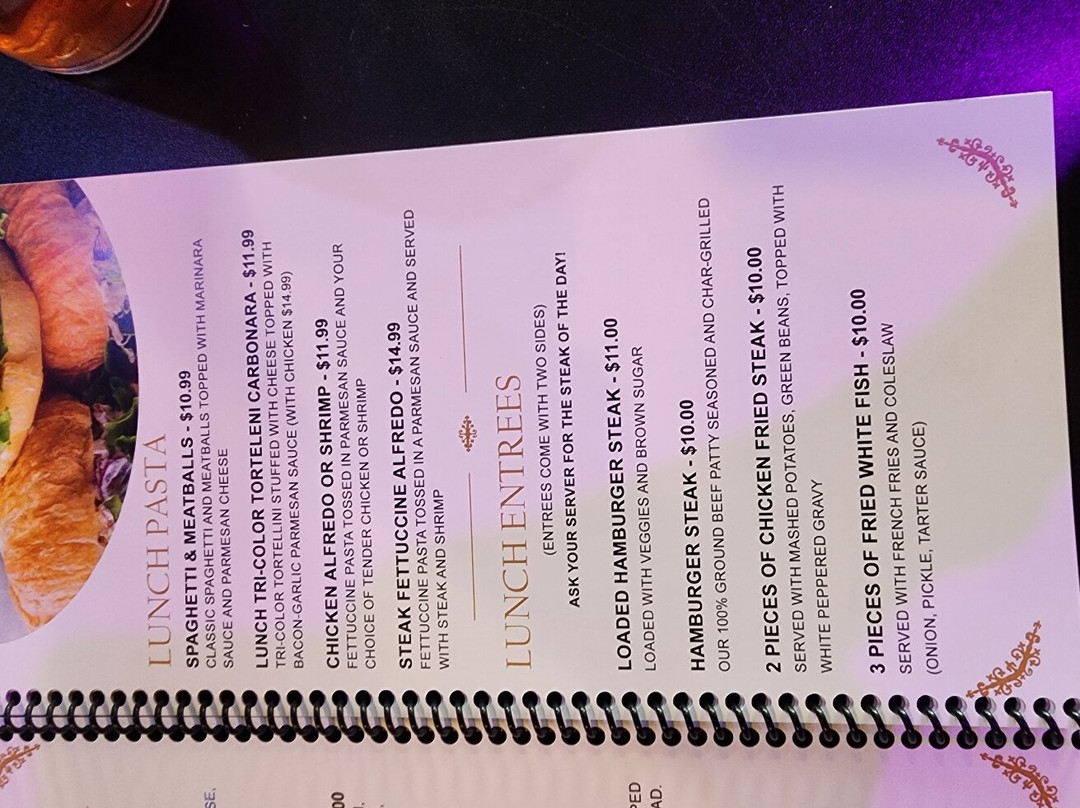 LUNCH PASTA
SPAGHETTI & MEATBALLS - $10.99
CLASSIC SPAGHETTI AND MEATBALLS TOPPED WITH MARINARA
SAUCE AND PARMESAN CHEESE
LUNCH TRI-COLOR TORTELENI CARBONARA - $11.99
TRI-COLOR TORTELLINI STUFFED WITH CHEESE TOPPED WITH
BACON-GARLIC PARMESAN SAUCE (WITH CHICKEN $14.99)
CHICKEN ALFREDO OR SHRIMP - $11.99
FETTUCCINE PASTA TOSSED IN PARMESAN SAUCE AND YOUR
CHOICE OF TENDER CHICKEN OR SHRIMP
STEAK FETTUCCINE ALFREDO - $14.99
FETTUCCINE PASTA TOSSED IN A PARMESAN SAUCE AND SERVED
WITH STEAK AND SHRIMP
LUNCH ENTREES
(ENTREES COME WITH TWO SIDES)
ASK YOUR SERVER FOR THE STEAK OF THE DAY!
LOADED HAMBURGER STEAK - $11.00
LOADED WITH VEGGIES AND BROWN SUGAR
HAMBURGER STEAK - $10.00
OUR 100% GROUND BEEF PATTY SEASONED AND CHAR-GRILLED
2 PIECES OF CHICKEN FRIED STEAK - $10.00
SERVED WITH MASHED POTATOES, GREEN BEANS, TOPPED WITH
WHITE PEPPERED GRAVY
3 PIECES OF FRIED WHITE FISH - $10.00
SERVED WITH FRENCH FRIES AND COLESLAW
(ONION, PICKLE, TARTER SAUCE)